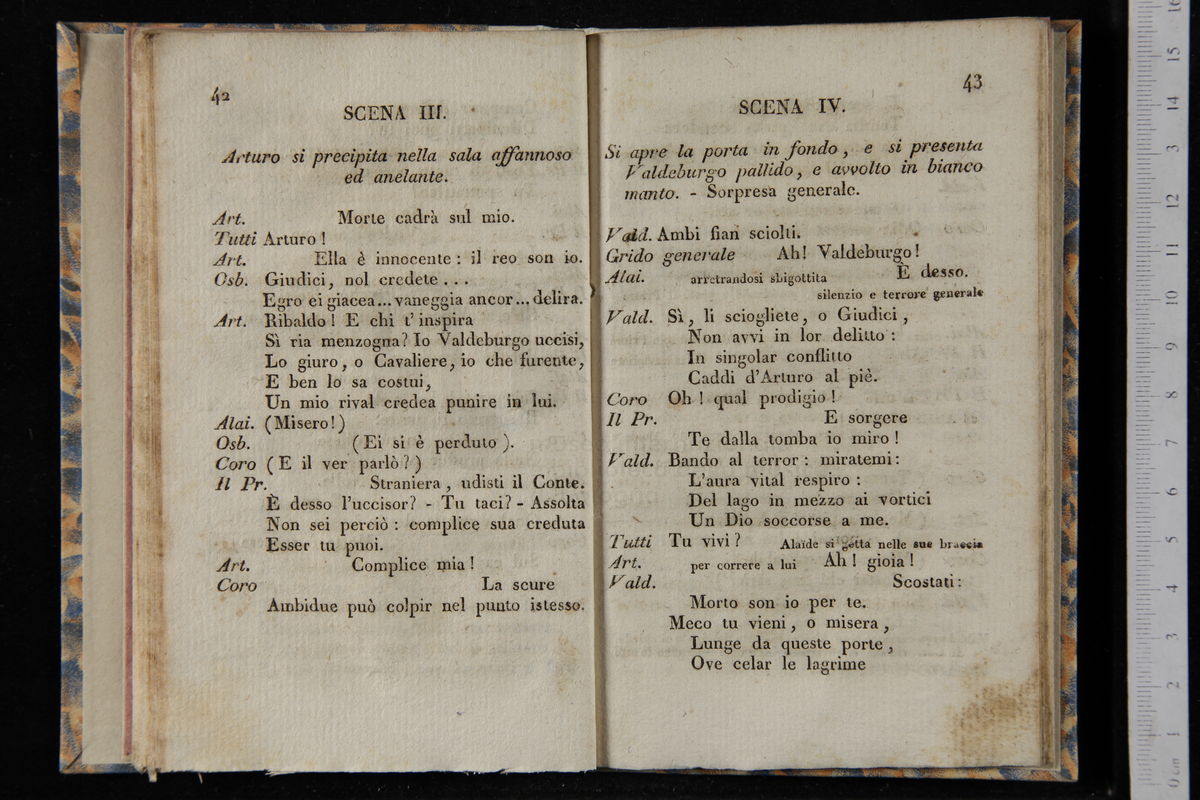 42
SCENA III.
Arturo si precipita nella sala affannoso
ed anelante.
Art. Morte cadrà sul mio.
Tutti Arturo !
Art. Ella è innocente : il reo son io.
Osb. Giudici, nol credete . . .
Egro ei giacea... vaneggia ancor... delira.
Art. Ribaldo ! E chi t' inspira
Sì ria menzogna? Io Valdeburgo uccisi,
Lo giuro, o Cavaliere, io che furente,
E ben lo sa costui,
Un mio rival credea punire in lui.
Alai. (Misero!)
Osb. (Ei si è perduto ).
Coro ( E il ver parlò ? )
Il Pr. Straniera , udisti il Conte.
È desso l'uccisor? - Tu taci? - Assolta
Non sei perciò : complice sua creduta
Esser tu puoi.
Art. Complice mia !
Coro La scure
Ambidue può colpir nel punto istesso.
43
SCENA IV.
Si apre la porta in fondo, e si presenta
Valdeburgo pallido, e avvolto in bianco
manto. - Sorpresa generale.
Vald. Ambi fian sciolti.
Grido generale Ah! Valdeburgo!
Alai. arretrandosi sbigottita E desso.
silenzio e terrore generale
Vald. Sì, li sciogliete, o Giudici,
Non avvi in lor delitto :
In singolar conflitto
Caddi d'Arturo al piè.
Coro Oh ! qual prodigio !
Il Pr. E sorgere
Te dalla tomba io miro !
Vald. Bando al terror : miratemi :
L'aura vital respiro :
Del lago in mezzo ai vortici
Un Dio soccorse a me.
Tutti Tu vivi ? Alaïde si getta nelle sue braccia
Art. per correre a lui Ah ! gioia !
Vald. Scostati :
Morto son io per te.
Meco tu vieni, o misera,
Lunge da queste porte,
Ove celar le lagrime
0 cm
1
2
3
4
5
6
7
8
9
10
11
12
3
14
15
16